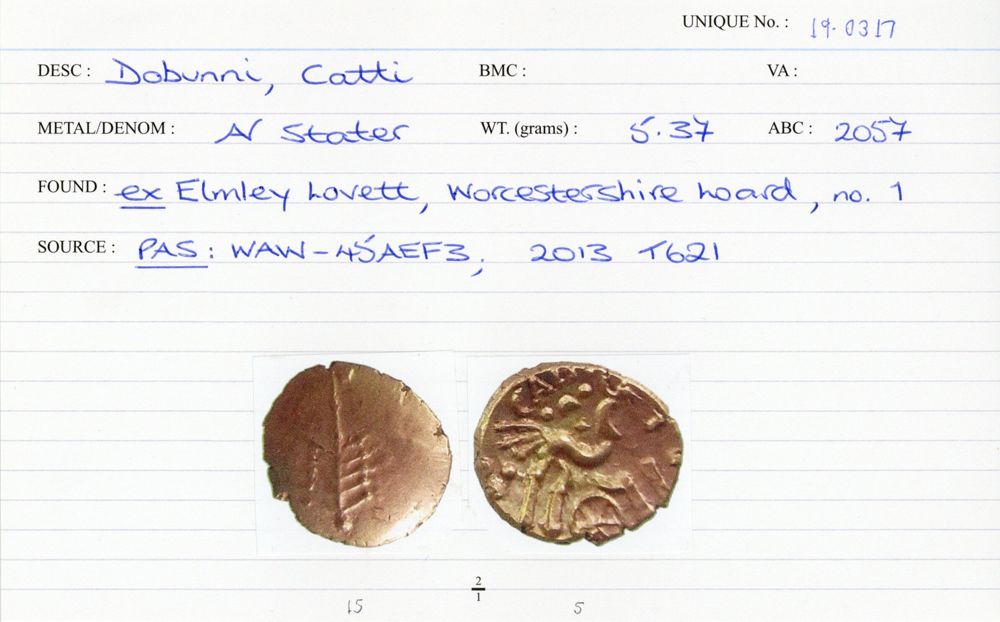 UNIQUE No. : 19.0317
DESC : Dobunni, Catti BMC : VA :
METAL/DENOM : AV Stater WT. (grams) : 5.37 ABC : 2057
FOUND : ex Elmley Lovett, Worcestershire hoard, no. 1
SOURCE : PAS: WAW-45AEF3, 2013 T621
2
1
15 5